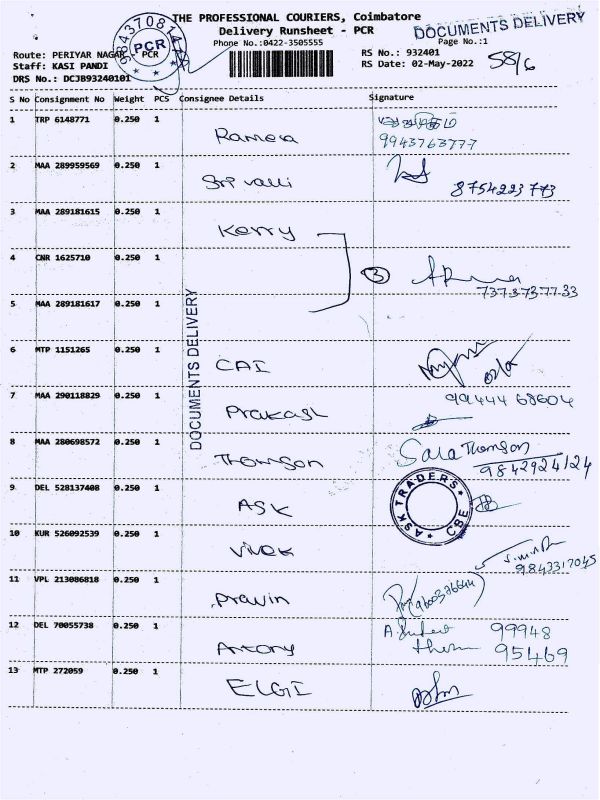 THE PROFESSIONAL COURIERS, Coimbatore
Delivery Runsheet - PCR
Phone No.:0422-3505555
DOCUMENTS DELIVERY
Page No.:1
Route: PERIYAR NAGAR - PCR
Staff: KASI PANDI
DRS No.: DCJB93240101
PCR
RS No.: 932401
RS Date: 02-May-2022
58/6
S No Consignment No Weight PCS Consignee Details Signature
1 TRP 6148771 0.250 1 Ramera
9943763777
2 MAA 289959569 0.250 1 Sri valli
8754223773
3 MAA 289181615 0.250 1 Kerry
4 CNR 1625710 0.250 1 3
7373737733
5 MAA 289181617 0.250 1
DOCUMENTS DELIVERY
6 MTP 1151265 0.250 1 CAI
7 MAA 290118829 0.250 1 Prakash 99444 68604
8 MAA 280698572 0.250 1 Thomson Sara Thomson
9842924124
9 DEL 528137408 0.250 1 ASK
ASK TRADERS CBE
10 KUR 526092539 0.250 1 Vivek
9843317045
11 VPL 213086818 0.250 1 Pravin 9600376644
12 DEL 70055738 0.250 1 Antony 99948
95469
13 MTP 272059 0.250 1 ELGI